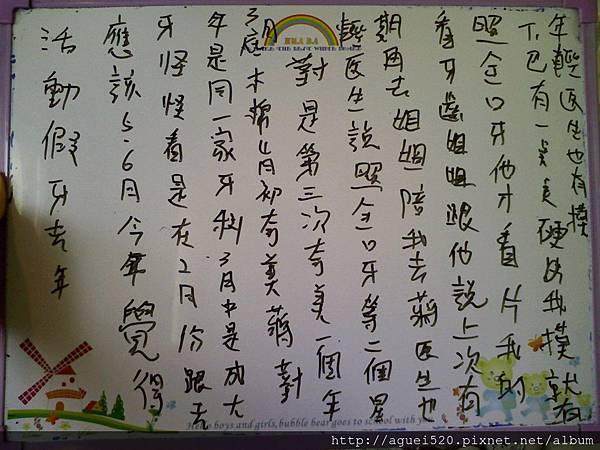 活動假牙去年
應該5.6月今年覺得
牙怪怪看是在2月份跟去
年是同一家牙科3月中是成大
3月底木棉4月初奇美蔣對
對是第三次奇美一個年
輕医生說照全口牙等二個星
期再去姐姐陪我去蔣医生也
看牙齒姐姐跟他說上次有
照全口牙他才看片我的
下巴有一點點硬我摸就有
年輕医生也有摸
boys and girls, bubble bear goes to school with you
http://aguei520.pixnet.net/album